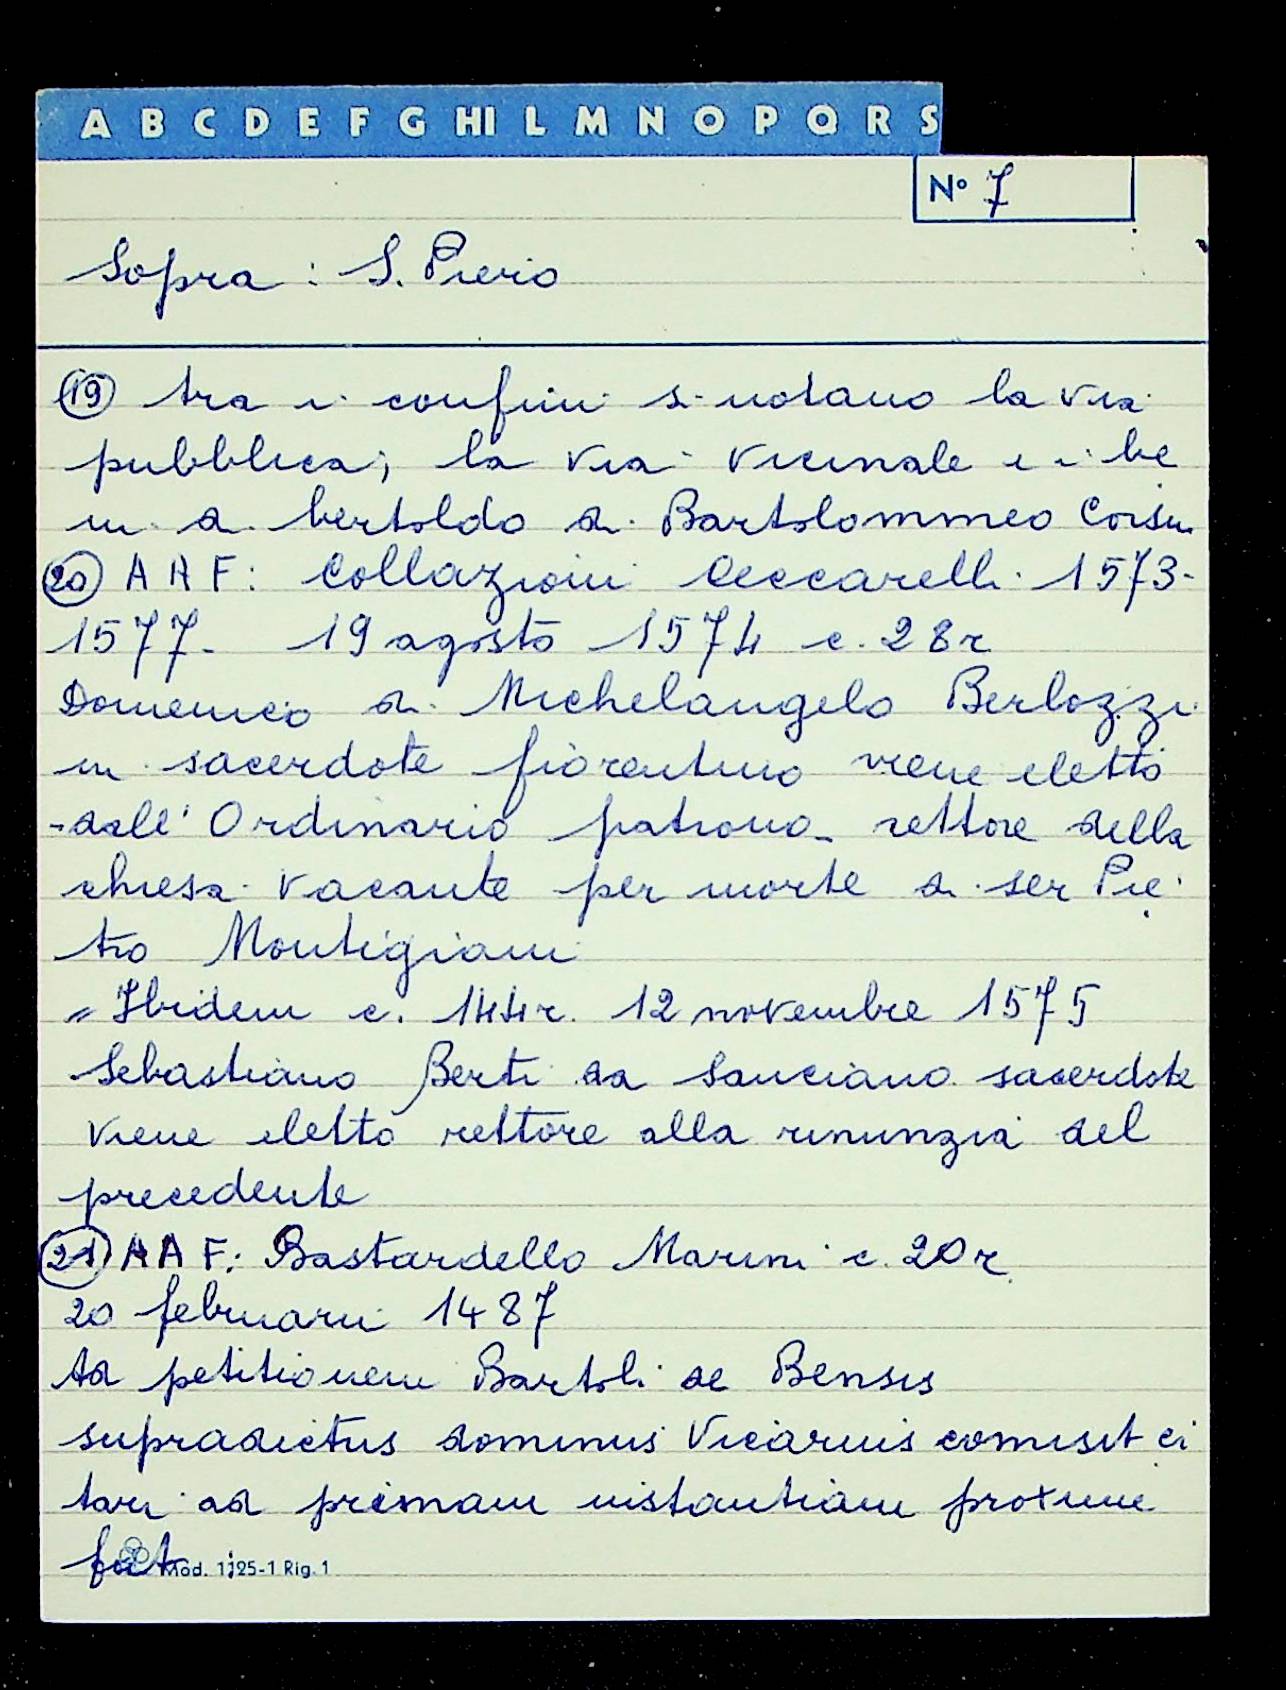 A B C D E F G HI L M N O P Q R S
N° 7
Sopra : S. Piero
19 tra i confini si notano la via
pubblica; la via vicinale e i be
ni di bertoldo di Bartolommeo Corsin
20 A A F: Collazioni Ceccarelli 1573-
1577- 19 agosto 1574 c. 28r
Domenico di Michelangelo Berlozzi
in sacerdote fiorentino viene eletto
-dall' Ordinario patrono- rettore della
chiesa vacante per morte di ser Pie
tro Montigiani
" Ibidem c. 144r. 12 novembre 1575
Sebastiano Berti da Sanciano sacerdote
viene eletto rettore alla rinunzia del
precedente
21 A A F: Bastardello Marini c. 20r
20 februarii 1487
Ad petitionem Bartoli de Bensis
supradictus dominus Vicarius comisit ci
tari ad primam instantiam proxime
fut.
Mod. 1125-1 Rig. 1